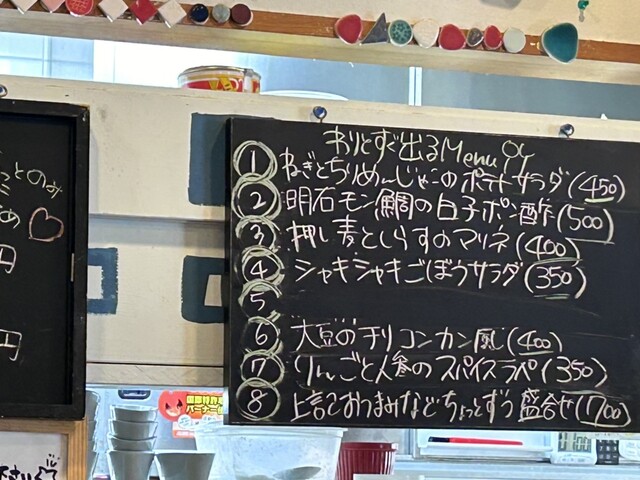 とのみ
め
円
円
わりとすぐ出るMenu
① ねぎとちりめんじゃこのポテトサラダ(450)
② 明石モン鯛の白子ポン酢(500)
③ 押し麦としらすのマリネ(400)
④ シャキシャキごぼうサラダ(350)
⑤
⑥ 大豆のチリコンカン風(400)
⑦ りんごと人参のスパイスラペ(350)
⑧ 上記おつまみなどちょっとずつ盛合せ(1700)
国際特許
バーナー